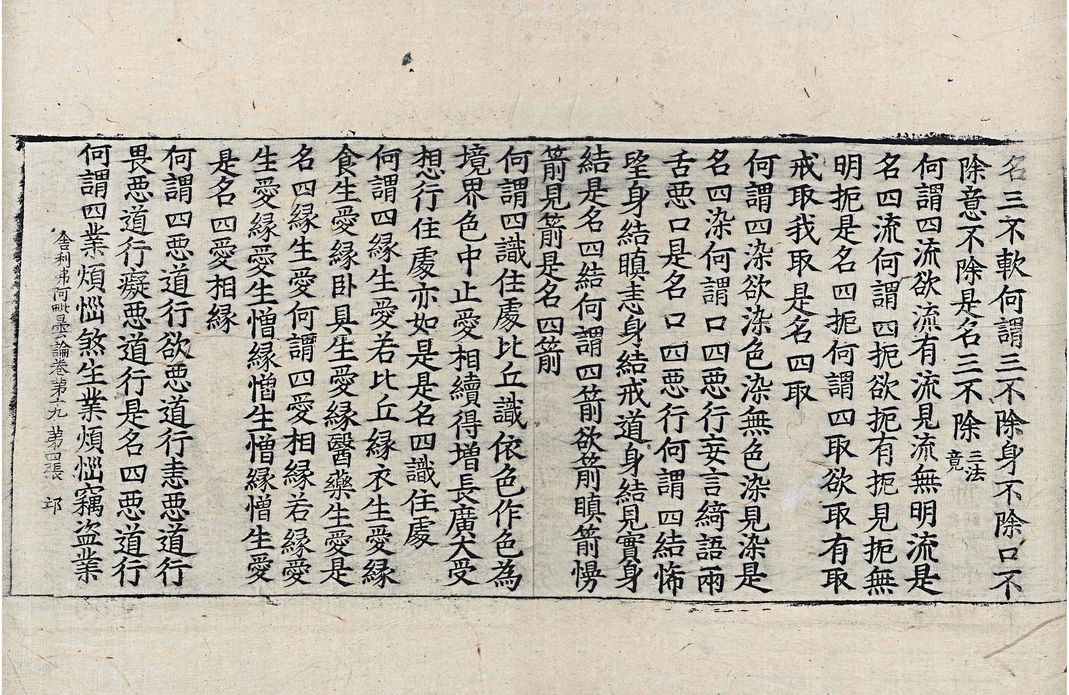 名三不軟何謂三不除身不除口不
除意不除是名三不除三法竟
何謂四流欲流有流見流無明流是
名四流何謂四扼欲扼有扼見扼無
明扼是名四扼何謂四取欲取有取
戒取我取是名四取
何謂四染欲染色染無色染見染是
名四染何謂口四惡行妄言綺語兩
舌惡口是名口四惡行何謂四結悕
望身結瞋恚身結戒道身結見實身
結是名四結何謂四箭欲箭瞋箭慢
箭見箭是名四箭
何謂四識住處比丘識依色作色為
境界色中止愛相續得增長廣大受
想行住處亦如是是名四識住處
何謂四緣生愛若比丘緣衣生愛緣
食生愛緣卧具生愛緣醫藥生愛是
名四緣生愛何謂四愛相緣若緣愛
生愛緣愛生憎緣憎生憎緣憎生愛
是名四愛相緣
何謂四惡道行欲惡道行恚惡道行
畏惡道行癡惡道行是名四惡道行
何謂四業煩惱煞生業煩惱竊盜業
舍利弗阿毗曇論卷第十九 第四張